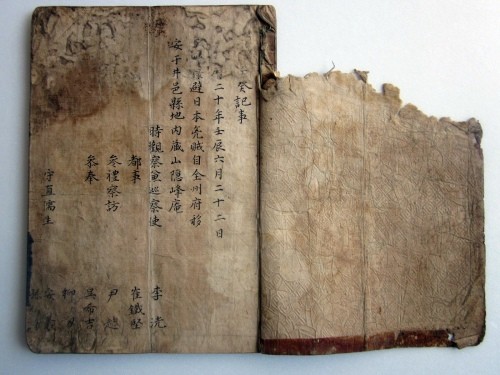 癸記事
二十年壬辰六月二十二日
避日本兇賊自全州府移
安于井邑縣地內藏山隱峰庵
時觀察兼巡察使 李洸
都事 崔鐵堅
參禮察訪 尹
參奉 吳希吉
柳
守直 生 安